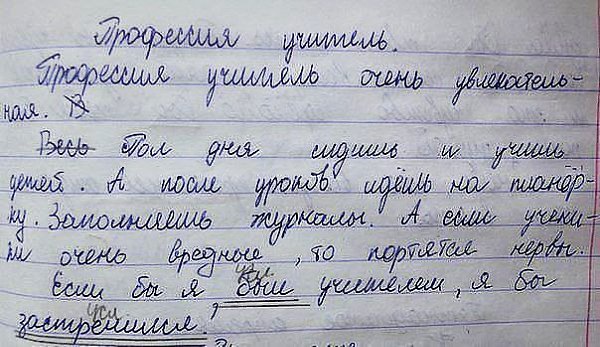 Профессия учитель.
Профессия учитель очень увлекатель-
ная. В
Весь Пол дня сидишь и учишь
детей. А после уроков идёшь на планёр-
ку. Заполняешь журналы. А если учени-
ки очень вредные, то портятся нервы.
усл
Если бы я был учителем, я бы
усл
застрелился.